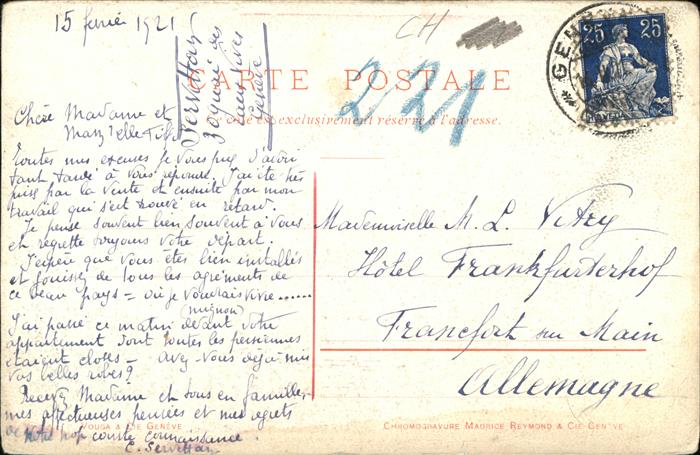 15 février 1921
Servettaz
20 quai des
Eaux Vives
Genève
CH
221
CARTE POSTALE
Ce côté est exclusivement réservé à l'adresse.
GENÈVE
25 25
HELVETIA
Chère Madame et
Mad'elle
Toutes mes excuses je vous prie d'avoir
tant tardé à vous répondre. J'ai été très
prise par la vente et ensuite par mon
travail qui s'est trouvé en retard.
Je pense souvent bien souvent à vous
et regrette toujours votre départ.
J'espère que vous êtes bien installés
et jouissez de tous les agréments de
ce beau pays = où je voudrais vivre......
J'ai passé ce matin devant votre
mignon
appartement dont toutes les persiennes
étaient closes — avez-vous déjà mis
vos belles robes?
Recevez Madame et tous en famille,
mes affectueuses pensées et mes regrets
de notre trop courte connaissance.
C. Servettaz
Mademoiselle M. L. Vitry
Hôtel Frankfurterhof
Francfort sur Main
Allemagne
VOUGA & CIE GENÈVE
CHROMOGRAVURE MAURICE REYMOND & CIE GENÈVE